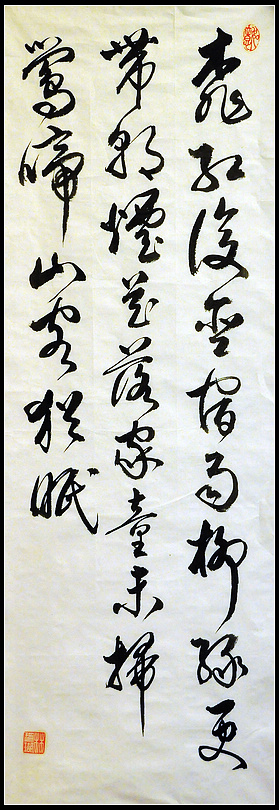 桃紅復含宿雨柳綠更
帶朝煙花落家童未掃
鶯啼山客猶眠